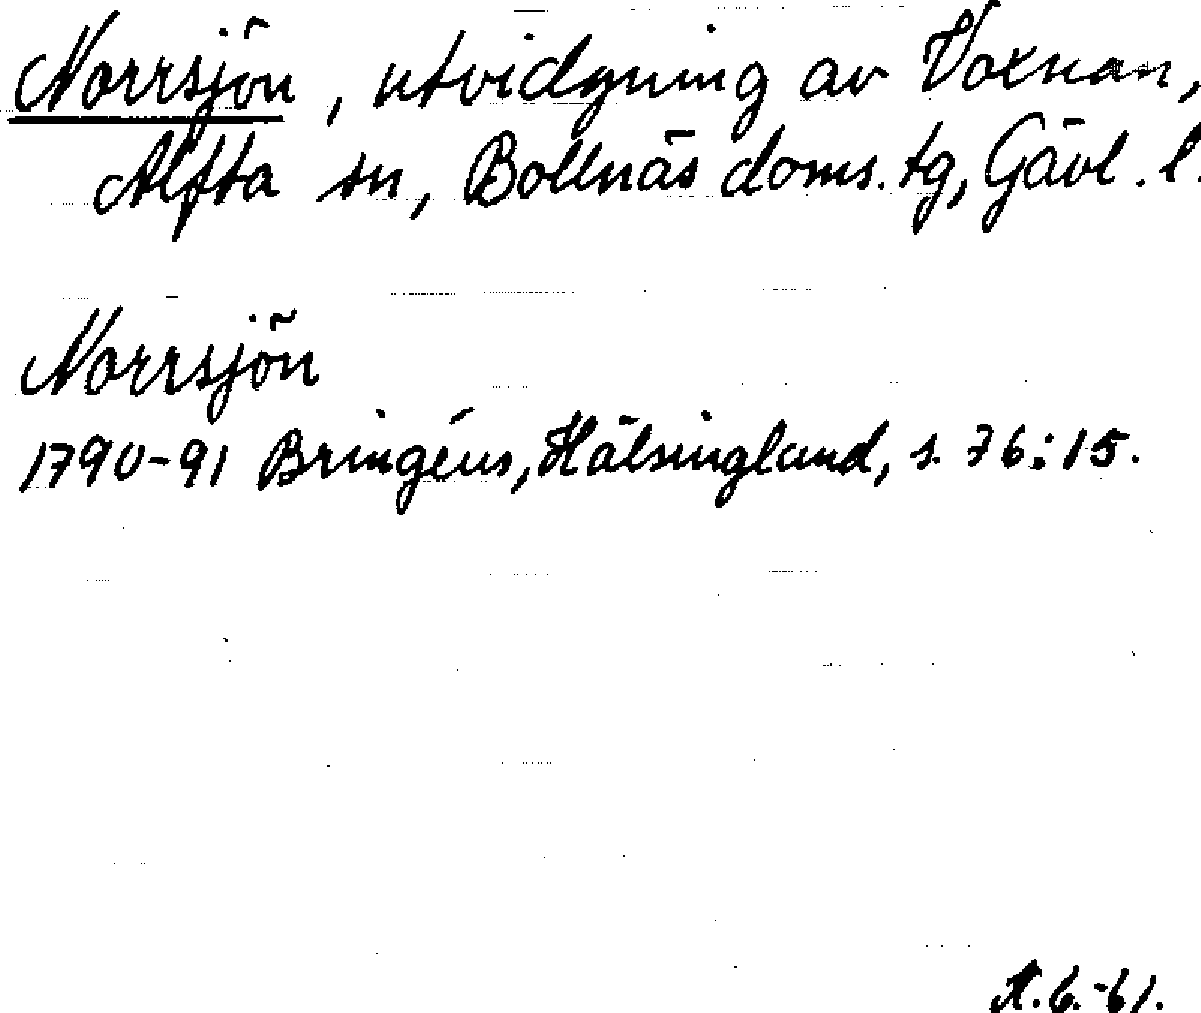 Norrsjön, utvidgning av Voxnan,
Alfta sn, Bollnäs doms. tg, Gävl. l.
Norrsjön
1790-91 Bringéus, Hälsingland, s. 76:15.